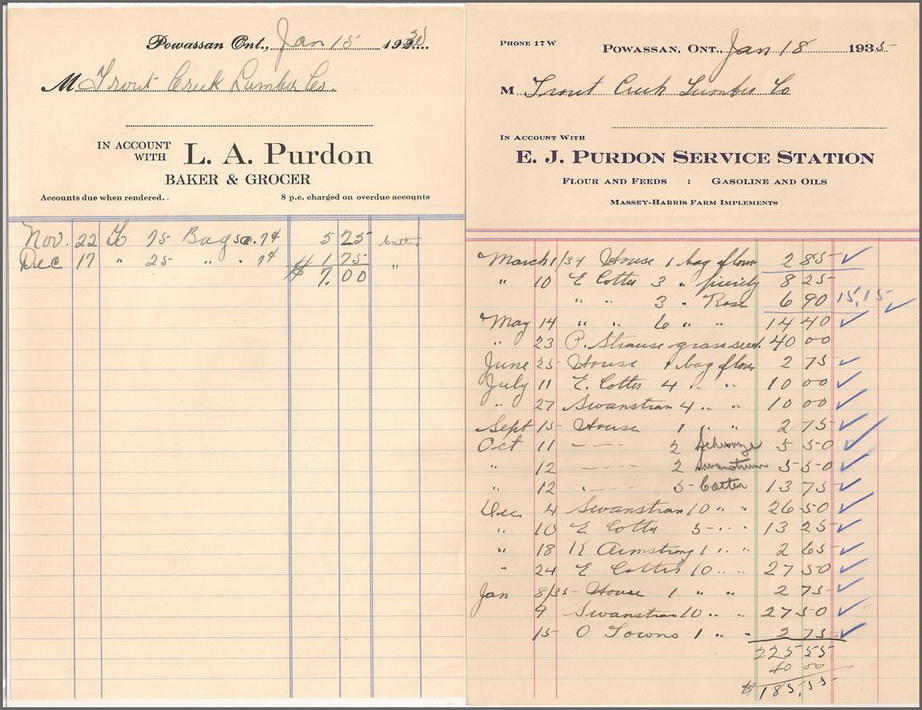 Powassan Ont., Jan 15 193
M Trout Creek Lumber Co.
IN ACCOUNT WITH L. A. Purdon
BAKER & GROCER
Accounts due when rendered. . 8 p.c. charged on overdue accounts
Nov. 22 To 75 Bags @ .7¢ 5 25
Dec 17 " 25 " " . 7¢ 1 75 "
$ 7.00
PHONE 17 W POWASSAN, ONT., Jan 18 1935
M Trout Creek Lumber Co
IN ACCOUNT WITH
E. J. PURDON SERVICE STATION
FLOUR AND FEEDS : GASOLINE AND OILS
MASSEY-HARRIS FARM IMPLEMENTS
March 1/34 House 1 bag flour 2 85 ✓
" 10 E Cotter 3 " 8 25
" " 3 " Rose 6 90 15,15 ✓
May 14 " " 6 " " 14 40 ✓
" 23 P. Strause grass seed 40 00
June 25 House 1 bag flour 2 75 ✓
July 11 E. Cotter 4 " " 10 00 ✓
" 27 Swanstran 4 " " 10 00 ✓
Sept 15 House 1 " " 2 75 ✓
Oct 11 - - - 2 5 50 ✓
" 12 - - - - 2 Swanstrum 5 50 ✓
" 12 " - - - 5 Cotter 13 75 ✓
Dec 4 Swanstran 10 " " 26 50 ✓
" 10 E Cotter 5 - " " 13 25 ✓
" 18 K Armstrong 1 " " 2 65 ✓
" 24 E Cotter 10 " " 27 50 ✓
Jan 8/35 House 1 " " 2 75 ✓
9 Swanstran 10 " " 27 50 ✓
15 O Towns 1 " " 2 75 ✓
225 55
40 00
$ 185,55